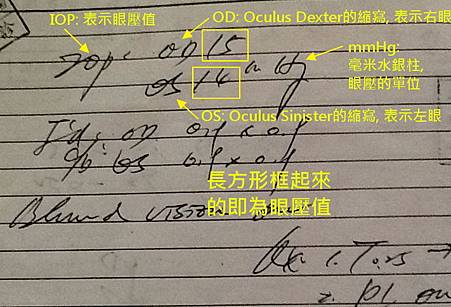 IOP: 表示眼壓值
OD: Oculus Dexter的縮寫, 表示右眼
mmHg:
毫米水銀柱,
眼壓的單位
IOP: OD 15
OS 14 Hg
OS: Oculus Sinister的縮寫, 表示左眼
OD 0.4 x 0.4
OS 0.4 x 0.4
長方形框起來
的即為眼壓值
Blurred vision